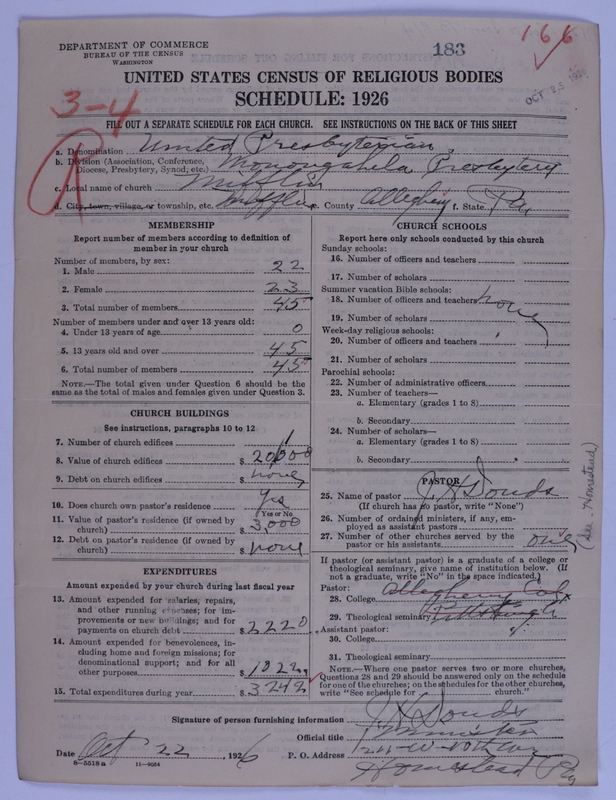 DEPARTMENT OF COMMERCE
BUREAU OF THE CENSUS
WASHINGTON
183
166
OCT 25 1926
UNITED STATES CENSUS OF RELIGIOUS BODIES
SCHEDULE: 1926
3-4
R
FILL OUT A SEPARATE SCHEDULE FOR EACH CHURCH. SEE INSTRUCTIONS ON THE BACK OF THIS SHEET
a. Denomination United Presbyterian
b. Division (Association, Conference, Diocese, Presbytery, Synod, etc.) Monongahela Presbytery
c. Local name of church Mifflin
d. City, town, village, or township, etc. Mifflin e. County Allegheny f. State Pa
MEMBERSHIP
Report number of members according to definition of
member in your church
Number of members, by sex:
1. Male 22
2. Female 23
3. Total number of members 45
Number of members under and over 13 years old:
4. Under 13 years of age 0
5. 13 years old and over 45
6. Total number of members 45
NOTE.—The total given under Question 6 should be the
same as the total of males and females given under Question 3.
CHURCH BUILDINGS
See instructions, paragraphs 10 to 12
7. Number of church edifices 1
8. Value of church edifices $ 20,000
9. Debt on church edifices $ none
10. Does church own pastor's residence Yes
Yes or No
11. Value of pastor's residence (if owned by
church) $ 3,000
12. Debt on pastor's residence (if owned by
church) $ none
EXPENDITURES
Amount expended by your church during last fiscal year
13. Amount expended for salaries, repairs,
and other running expenses; for im-
provements or new buildings; and for
payments on church debt $ 2220
14. Amount expended for benevolences, in-
cluding home and foreign missions; for
denominational support; and for all
other purposes $ 1022
15. Total expenditures during year $ 3242
CHURCH SCHOOLS
Report here only schools conducted by this church
Sunday schools:
16. Number of officers and teachers
17. Number of scholars
Summer vacation Bible schools:
18. Number of officers and teachers none
19. Number of scholars
Week-day religious schools:
20. Number of officers and teachers
21. Number of scholars
Parochial schools:
22. Number of administrative officers
23. Number of teachers—
a. Elementary (grades 1 to 8)
b. Secondary
24. Number of scholars—
a. Elementary (grades 1 to 8)
b. Secondary
PASTOR
25. Name of pastor J. H. Douds
(If church has no pastor, write "None")
26. Number of ordained ministers, if any, em-
ployed as assistant pastors
27. Number of other churches served by the
pastor or his assistants one
(See Homestead)
If pastor (or assistant pastor) is a graduate of a college or
theological seminary, give name of institution below. (If
not a graduate, write "No" in the space indicated.)
Pastor:
28. College Allegheny Col
29. Theological seminary Pittsburgh
Assistant pastor:
30. College
31. Theological seminary
NOTE.—Where one pastor serves two or more churches,
Questions 28 and 29 should be answered only on the schedule
for one of the churches; on the schedules for the other churches,
write "See schedule for church."
Signature of person furnishing information J. H. Douds
Official title Minister
Date Oct 22, 1926 P. O. Address
Homestead Pa
8-5518a 11-9054